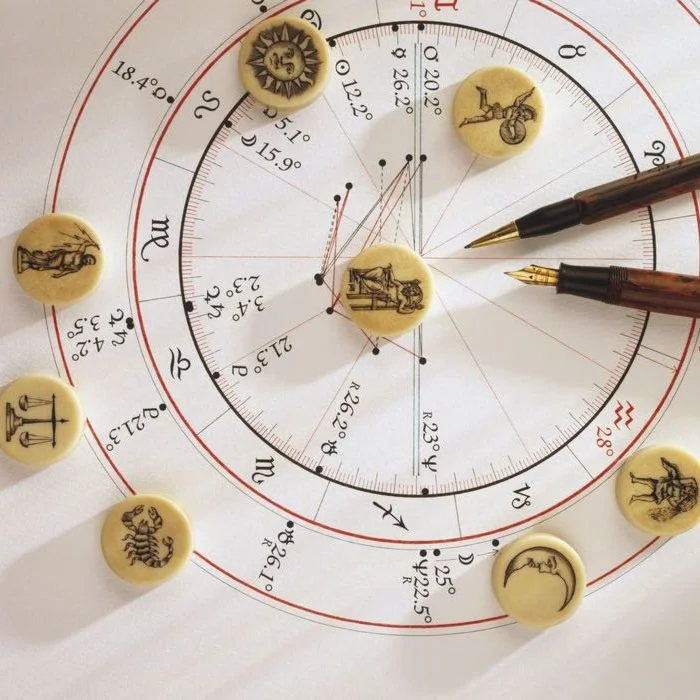 1°
♉
♈
18.4°
♌
☉ 12.2°
☿ 26.2°
♂ 20.2°
5.1°
☽ 15.9°
♍
♃ 2.3°
♄ 3.4°
♃ 3.5°
♄ 4.2°
♎
♇ 21.3°
♇ 21.3°
♏
R 26.2° ♅
♅ 26.1° R
R 23° ♆
♐
♑
♒ 28°
☽ 25°
♆ 22.5° R